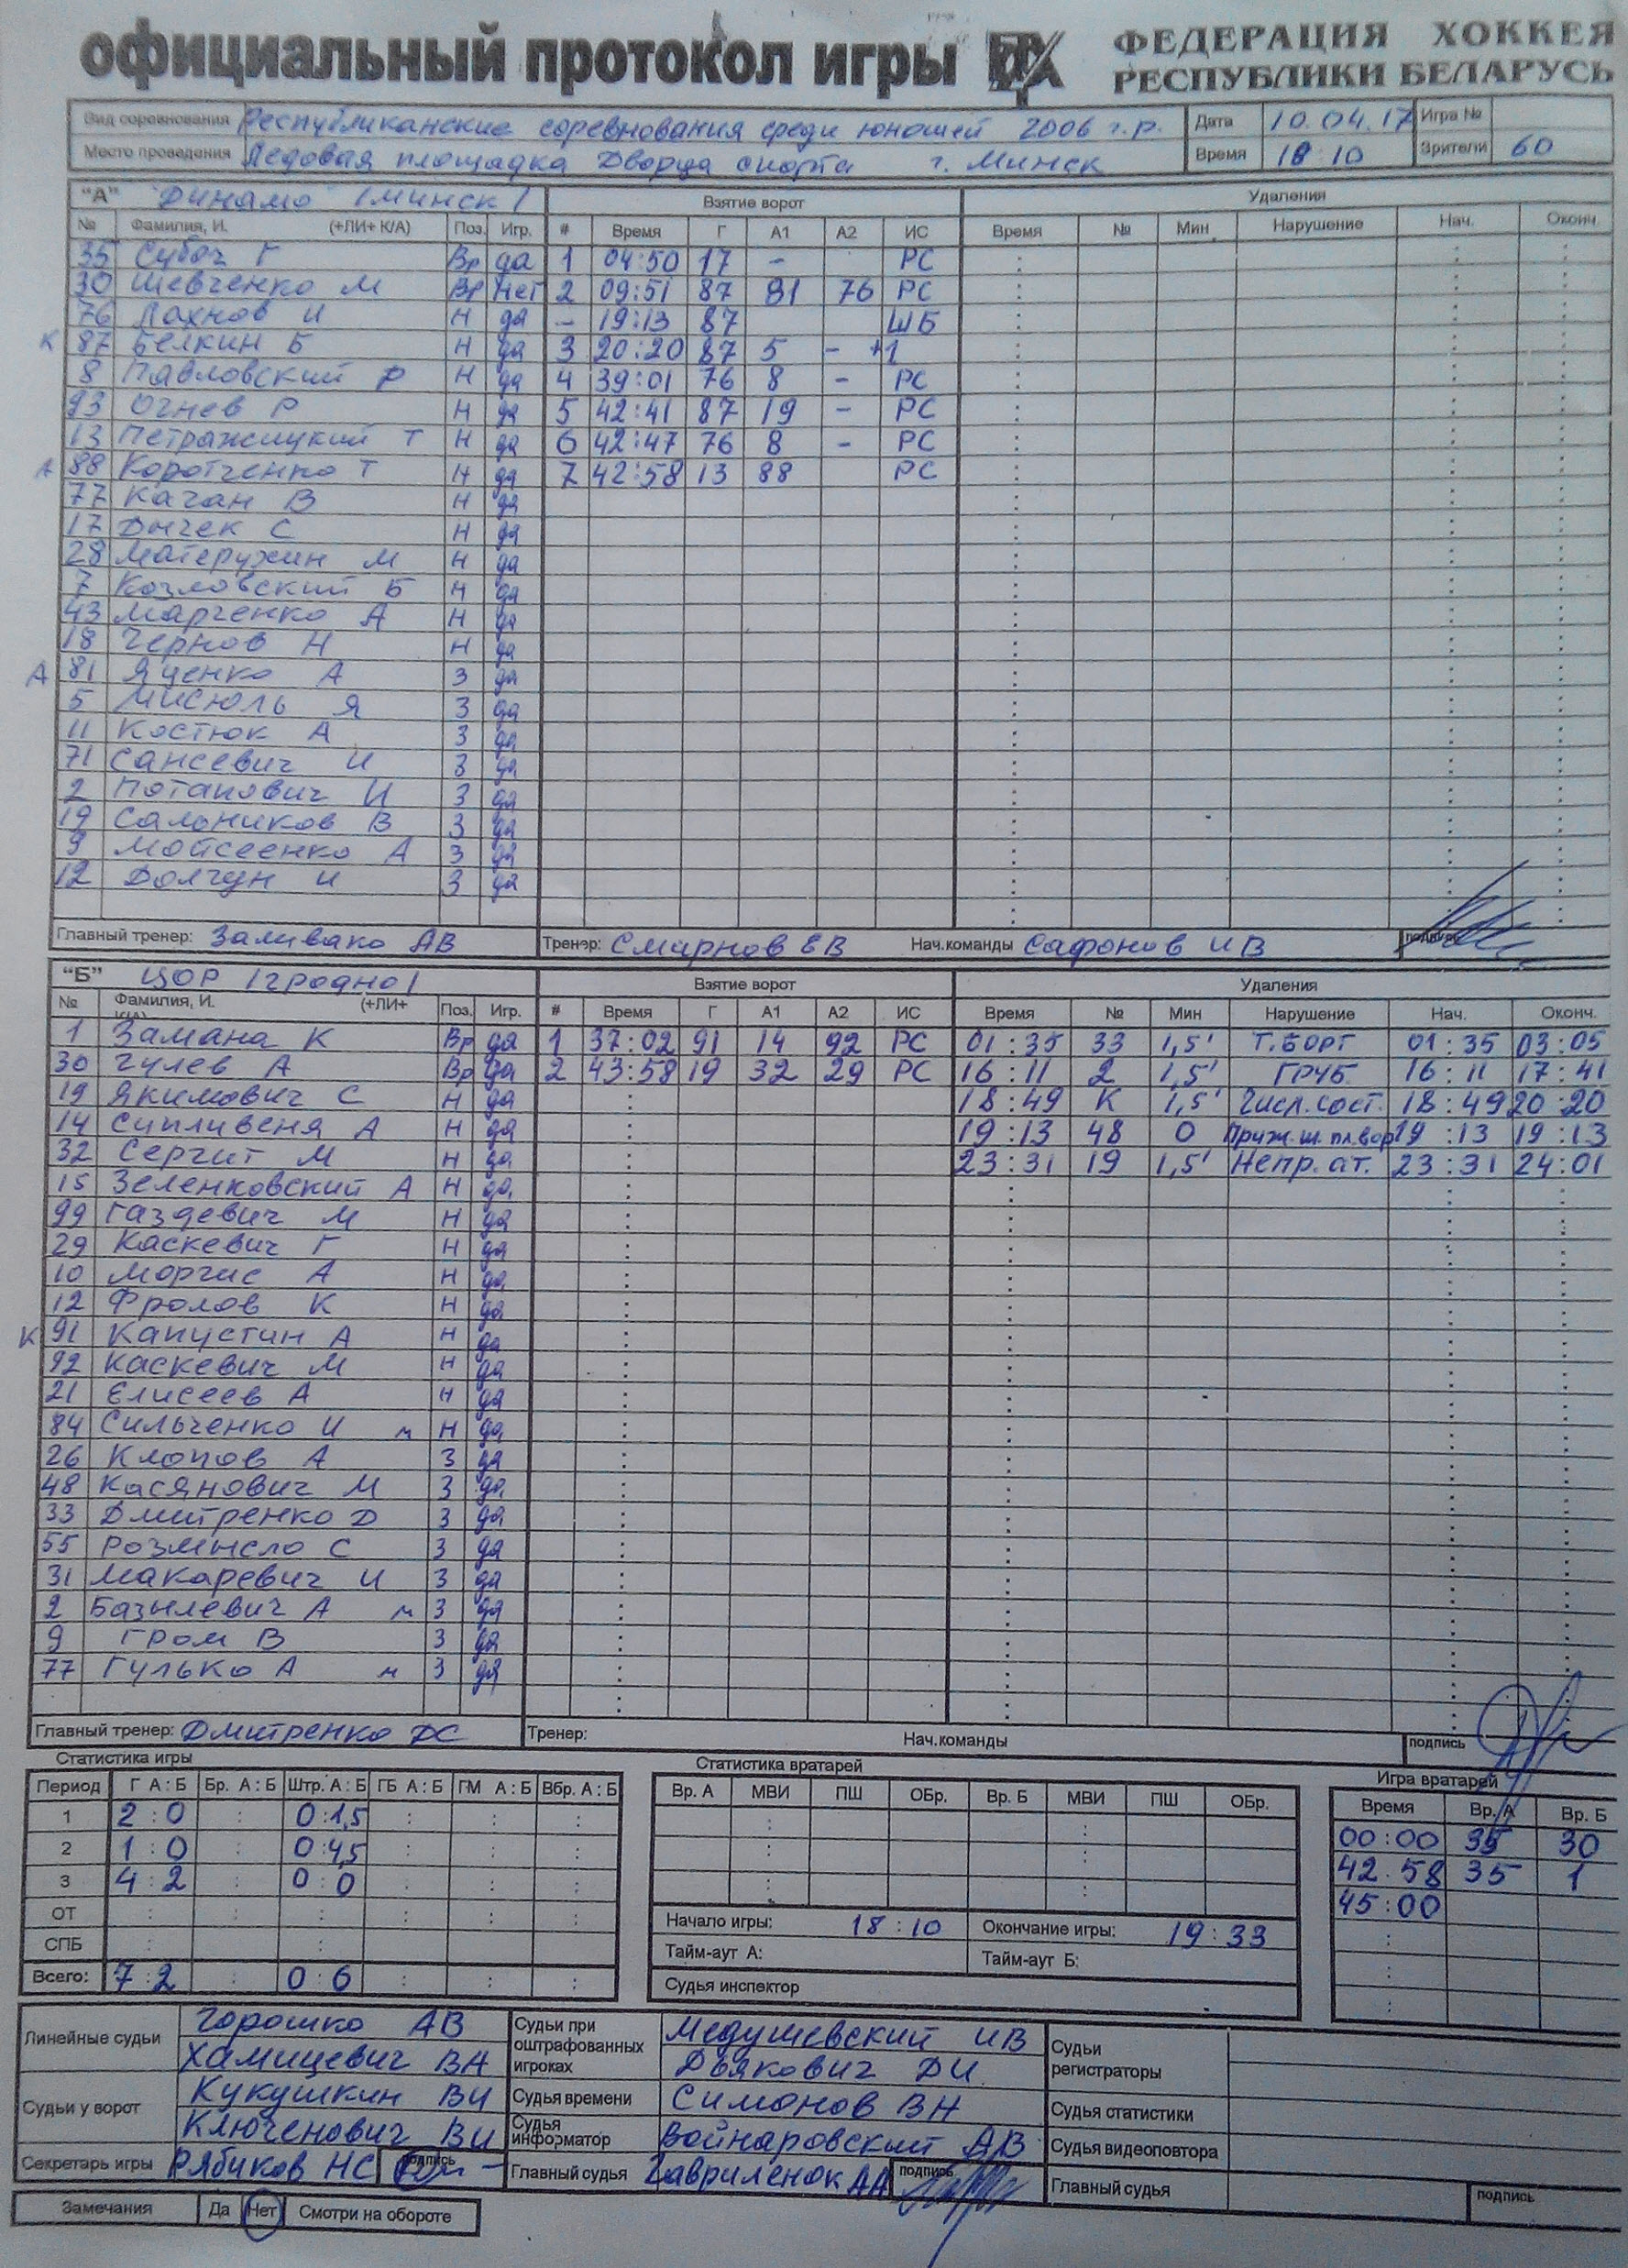 официальный протокол игры ФЕДЕРАЦИЯ ХОККЕЯ
РЕСПУБЛИКИ БЕЛАРУСЬ
Вид соревнования Республиканские соревнования среди юношей 2006 г.р. Дата 10.04.17 Игра №
Место проведения Ледовая площадка Дворца спорта г. Минск Время 18:10 Зрители 60
"А" "Динамо" /Минск/ Взятие ворот Удаления
№ Фамилия, И. (+ЛИ+ К/А) Поз. Игр. # Время Г А1 А2 ИС Время № Мин Нарушение Нач. Оконч.
35 Субоч Г Вр да 1 04:50 17 - РС
30 Шевченко М Вр Нет 2 09:51 87 81 76 РС
76 Лахнов И Н да - 19:13 87 ШБ
К 87 Белкин Б Н да 3 20:20 87 5 - +1
8 Павловский Р Н да 4 39:01 76 8 - РС
93 Огнев Р Н да 5 42:41 87 19 - РС
13 Петражицкий Т Н да 6 42:47 76 8 - РС
А 88 Коротченко Т Н да 7 42:58 13 88 РС
77 Качан В Н да
17 Дычек С Н да
28 Матерухин М Н да
7 Козловский Б Н да
43 Марченко А Н да
18 Чернов Н Н да
А 81 Яценко А З да
5 Мисюль Я З да
11 Костюк А З да
71 Сансевич И З да
2 Потапович И З да
19 Сальников В З да
9 Мойсеенко А З да
12 Долгун И З да
Главный тренер: Заливако АВ Тренер: Смирнов ЕВ Нач.команды Сафонов ИВ подпись
"Б" ЦОР /Гродно/ Взятие ворот Удаления
№ Фамилия, И. (+ЛИ+ К/А) Поз. Игр. # Время Г А1 А2 ИС Время № Мин Нарушение Нач. Оконч.
1 Замана К Вр да 1 37:02 91 14 92 РС 01:35 33 1,5' Т.БОРТ 01:35 03:05
30 Гулев А Вр да 2 43:58 19 32 29 РС 16:11 2 1,5' ГРУБ 16:11 17:41
19 Якимович С Н да 18:49 К 1,5' Числ.сост. 18:49 20:20
14 Сипливеня А Н да 19:13 48 0 Приж.ш.пл.вор 19:13 19:13
32 Сергит М Н да 23:31 19 1,5' Непр.ат. 23:31 24:01
15 Зеленковский А Н да
99 Газдевич М Н да
29 Каскевич Г Н да
10 Моргис А Н да
12 Фролов К Н да
К 91 Капустин А Н да
92 Каскевич М Н да
21 Елисеев А Н да
84 Сильченко И м Н да
26 Клопов А З да
48 Касянович М З да
33 Дмитренко Д З да
55 Розмысло С З да
31 Макаревич И З да
2 Базылевич А м З да
9 Гром В З да
77 Гулько А м З да
Главный тренер: Дмитренко ДС Тренер: Нач.команды подпись
Статистика игры Статистика вратарей Игра вратарей
Период Г А:Б Бр. А:Б Штр. А:Б ГБ А:Б ГМ А:Б Вбр. А:Б Вр. А МВИ ПШ ОБр. Вр. Б МВИ ПШ ОБр. Время Вр. А Вр. Б
1 2:0 0:1,5 00:00 35 30
2 1:0 0:4,5 42:58 35 1
3 4:2 0:0 45:00
ОТ Начало игры: 18:10 Окончание игры: 19:33
СПБ Тайм-аут А: Тайм-аут Б:
Всего: 7:2 0:6 Судья инспектор
Линейные судьи Горошко АВ Судьи при оштрафованных игроках Медушевский ИВ Судьи регистраторы
Хамицевич ВА Дьякович ДИ
Судьи у ворот Кукушкин ВИ Судья времени Симонов ВН Судья статистики
Ключенович ВИ Судья информатор Войнаровский АВ Судья видеоповтора
Секретарь игры Рябиков НС подпись Главный судья Гавриленок АА подпись Главный судья подпись
Замечания Да Нет Смотри на обороте